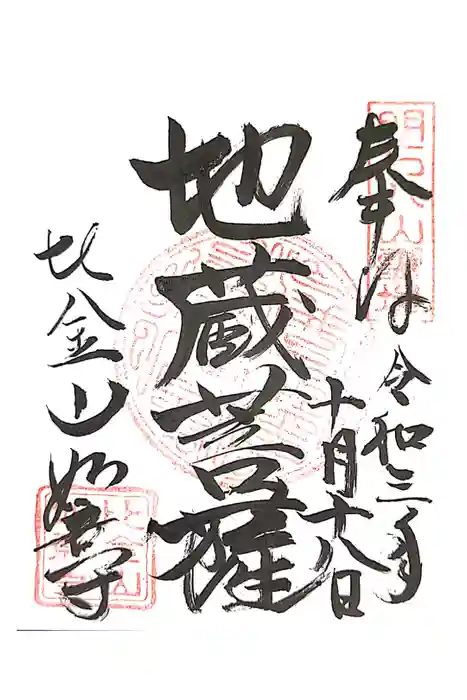 奉拝
令和三年
十月十八日
地蔵菩薩
比金山如意寺